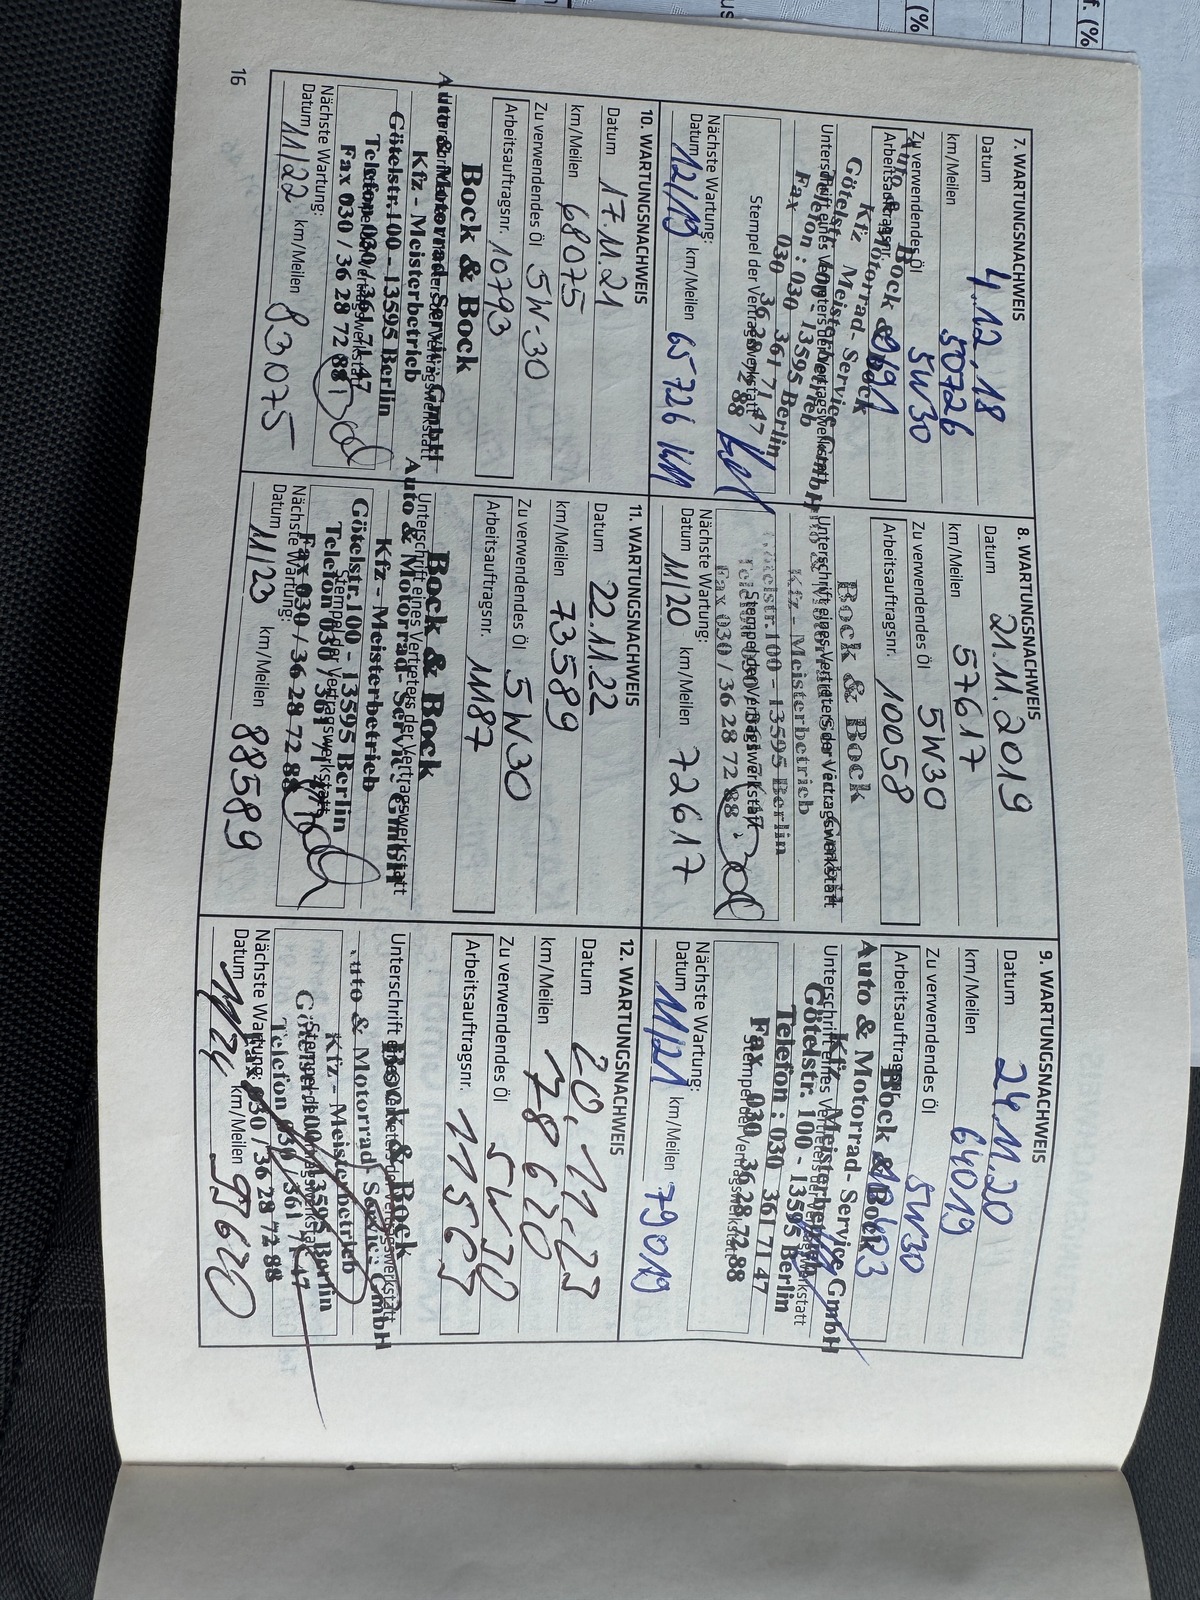 7. WARTUNGSNACHWEIS
Datum 4.12.18
km/Meilen 50726
Zu verwendendes Öl 5W30
Arbeitsauftragsnr.
Bock & Bock
Auto & Motorrad-Service GmbH
Kfz Meisterbetrieb
Götelstr. 100 - 13595 Berlin
Telefon : 030 361 71 47
Fax 030 36 28 72 88
Unterschrift eines Vertreters der Vertragswerkstatt
Stempel der Vertragswerkstatt
Nächste Wartung:
Datum 12/19 km/Meilen 65726 KM
8. WARTUNGSNACHWEIS
Datum 21.11.2019
km/Meilen 57617
Zu verwendendes Öl 5W30
Arbeitsauftragsnr. 10058
Bock & Bock
Unterschrift eines Vertreters der Vertragswerkstatt
Kfz - Meisterbetrieb
Götelstr.100 - 13595 Berlin
Stempel der Vertragswerkstatt
Fax 030 / 36 28 72 88
Nächste Wartung:
Datum 11/20 km/Meilen 72617
9. WARTUNGSNACHWEIS
Datum 24.11.20
km/Meilen 64019
Zu verwendendes Öl 5W30
Arbeitsauftragsnr.
Bock & Bock
Auto & Motorrad- Service GmbH
Unterschrift eines Vertreters der Vertragswerkstatt
Kfz Meisterbetrieb
Götelstr. 100 - 13595 Berlin
Telefon : 030 361 71 47
Fax 030 36 28 72 88
Stempel der Vertragswerkstatt
Nächste Wartung:
Datum 11/21 km/Meilen 79019
10. WARTUNGSNACHWEIS
Datum 17.11.21
km/Meilen 68075
Zu verwendendes Öl 5W-30
Arbeitsauftragsnr. 10793
Bock & Bock
Auto & Motorrad-Service GmbH
Unterschrift eines Vertreters der Vertragswerkstatt
Kfz - Meisterbetrieb
Götelstr.100 - 13595 Berlin
Telefon 030 / 361 71 47
Stempel der Vertragswerkstatt
Fax 030 / 36 28 72 88
Nächste Wartung:
Datum 11/22 km/Meilen 83075
11. WARTUNGSNACHWEIS
Datum 22.11.22
km/Meilen 73589
Zu verwendendes Öl 5W30
Arbeitsauftragsnr. 11187
Bock & Bock
Unterschrift eines Vertreters der Vertragswerkstatt
Auto & Motorrad-Service GmbH
Kfz - Meisterbetrieb
Götelstr.100 - 13595 Berlin
Telefon 030 / 361 71 47
Stempel der Vertragswerkstatt
Fax 030 / 36 28 72 88
Nächste Wartung:
Datum 11/23 km/Meilen 88589
12. WARTUNGSNACHWEIS
Datum 20.11.23
km/Meilen 78620
Zu verwendendes Öl 5W30
Arbeitsauftragsnr. 11565
Bock & Bock
Unterschrift eines Vertreters der Vertragswerkstatt
Auto & Motorrad-Service GmbH
Kfz - Meisterbetrieb
Götelstr.100 - 13595 Berlin
Stempel der Vertragswerkstatt
Telefon 030 / 361 71 47
Fax 030 / 36 28 72 88
Nächste Wartung:
Datum 11/24 km/Meilen 93620
16